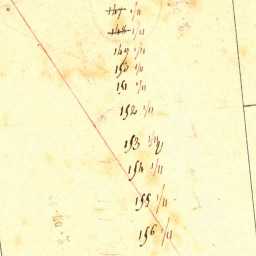 147 1/11
148 1/11
149 1/11
150 1/11
151 1/11
152 1/11
153 1/11
154 1/11
155 1/11
156 1/11